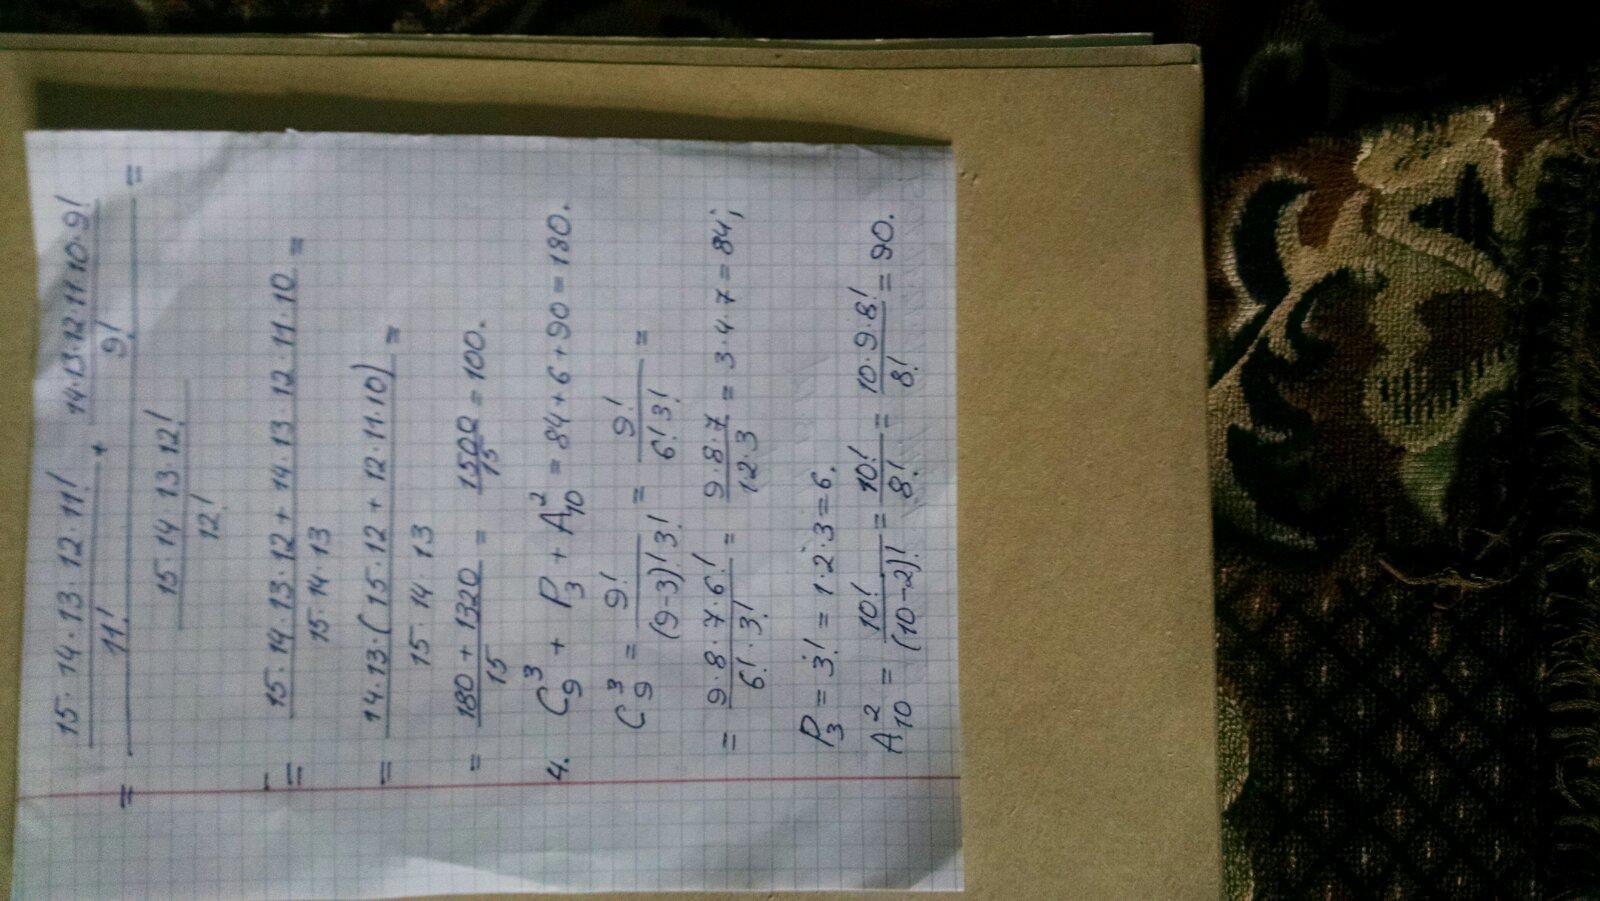 = (15·14·13·12·11!/11! + 14·13·12·11·10·9!/9!) / (15·14·13·12!/12!) =
= (15·14·13·12 + 14·13·12·11·10) / (15·14·13) =
= 14·13·(15·12 + 12·11·10) / (15·14·13) =
= (180 + 1320)/15 = 1500/15 = 100.
4. C₉³ + P₃ + A₁₀² = 84 + 6 + 90 = 180.
C₉³ = 9!/((9-3)! 3!) = 9!/(6! 3!) =
= 9·8·7·6!/(6!·3!) = 9·8·7/(1·2·3) = 3·4·7 = 84;
P₃ = 3! = 1·2·3 = 6.
A₁₀² = 10!/(10-2)! = 10!/8! = 10·9·8!/8! = 90.